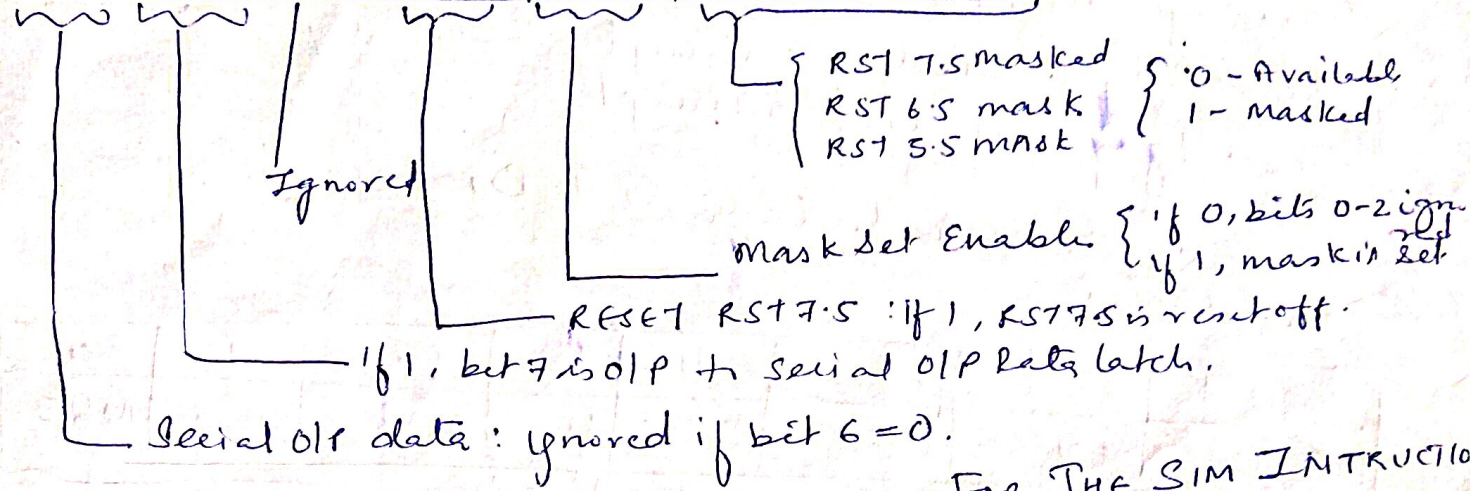 RST 7.5 masked { 0 - Available
RST 6.5 mask 1 - masked
RST 5.5 mask
Ignored
mask set Enable { if 0, bits 0-2 ignored
if 1, mask is set
RESET RST 7.5 : if 1, RST 7.5 is reset off.
if 1, bit 7 is O/P to serial O/P Data latch.
Serial O/P data : ignored if bit 6 = 0.
THE SIM INTRUCTIO